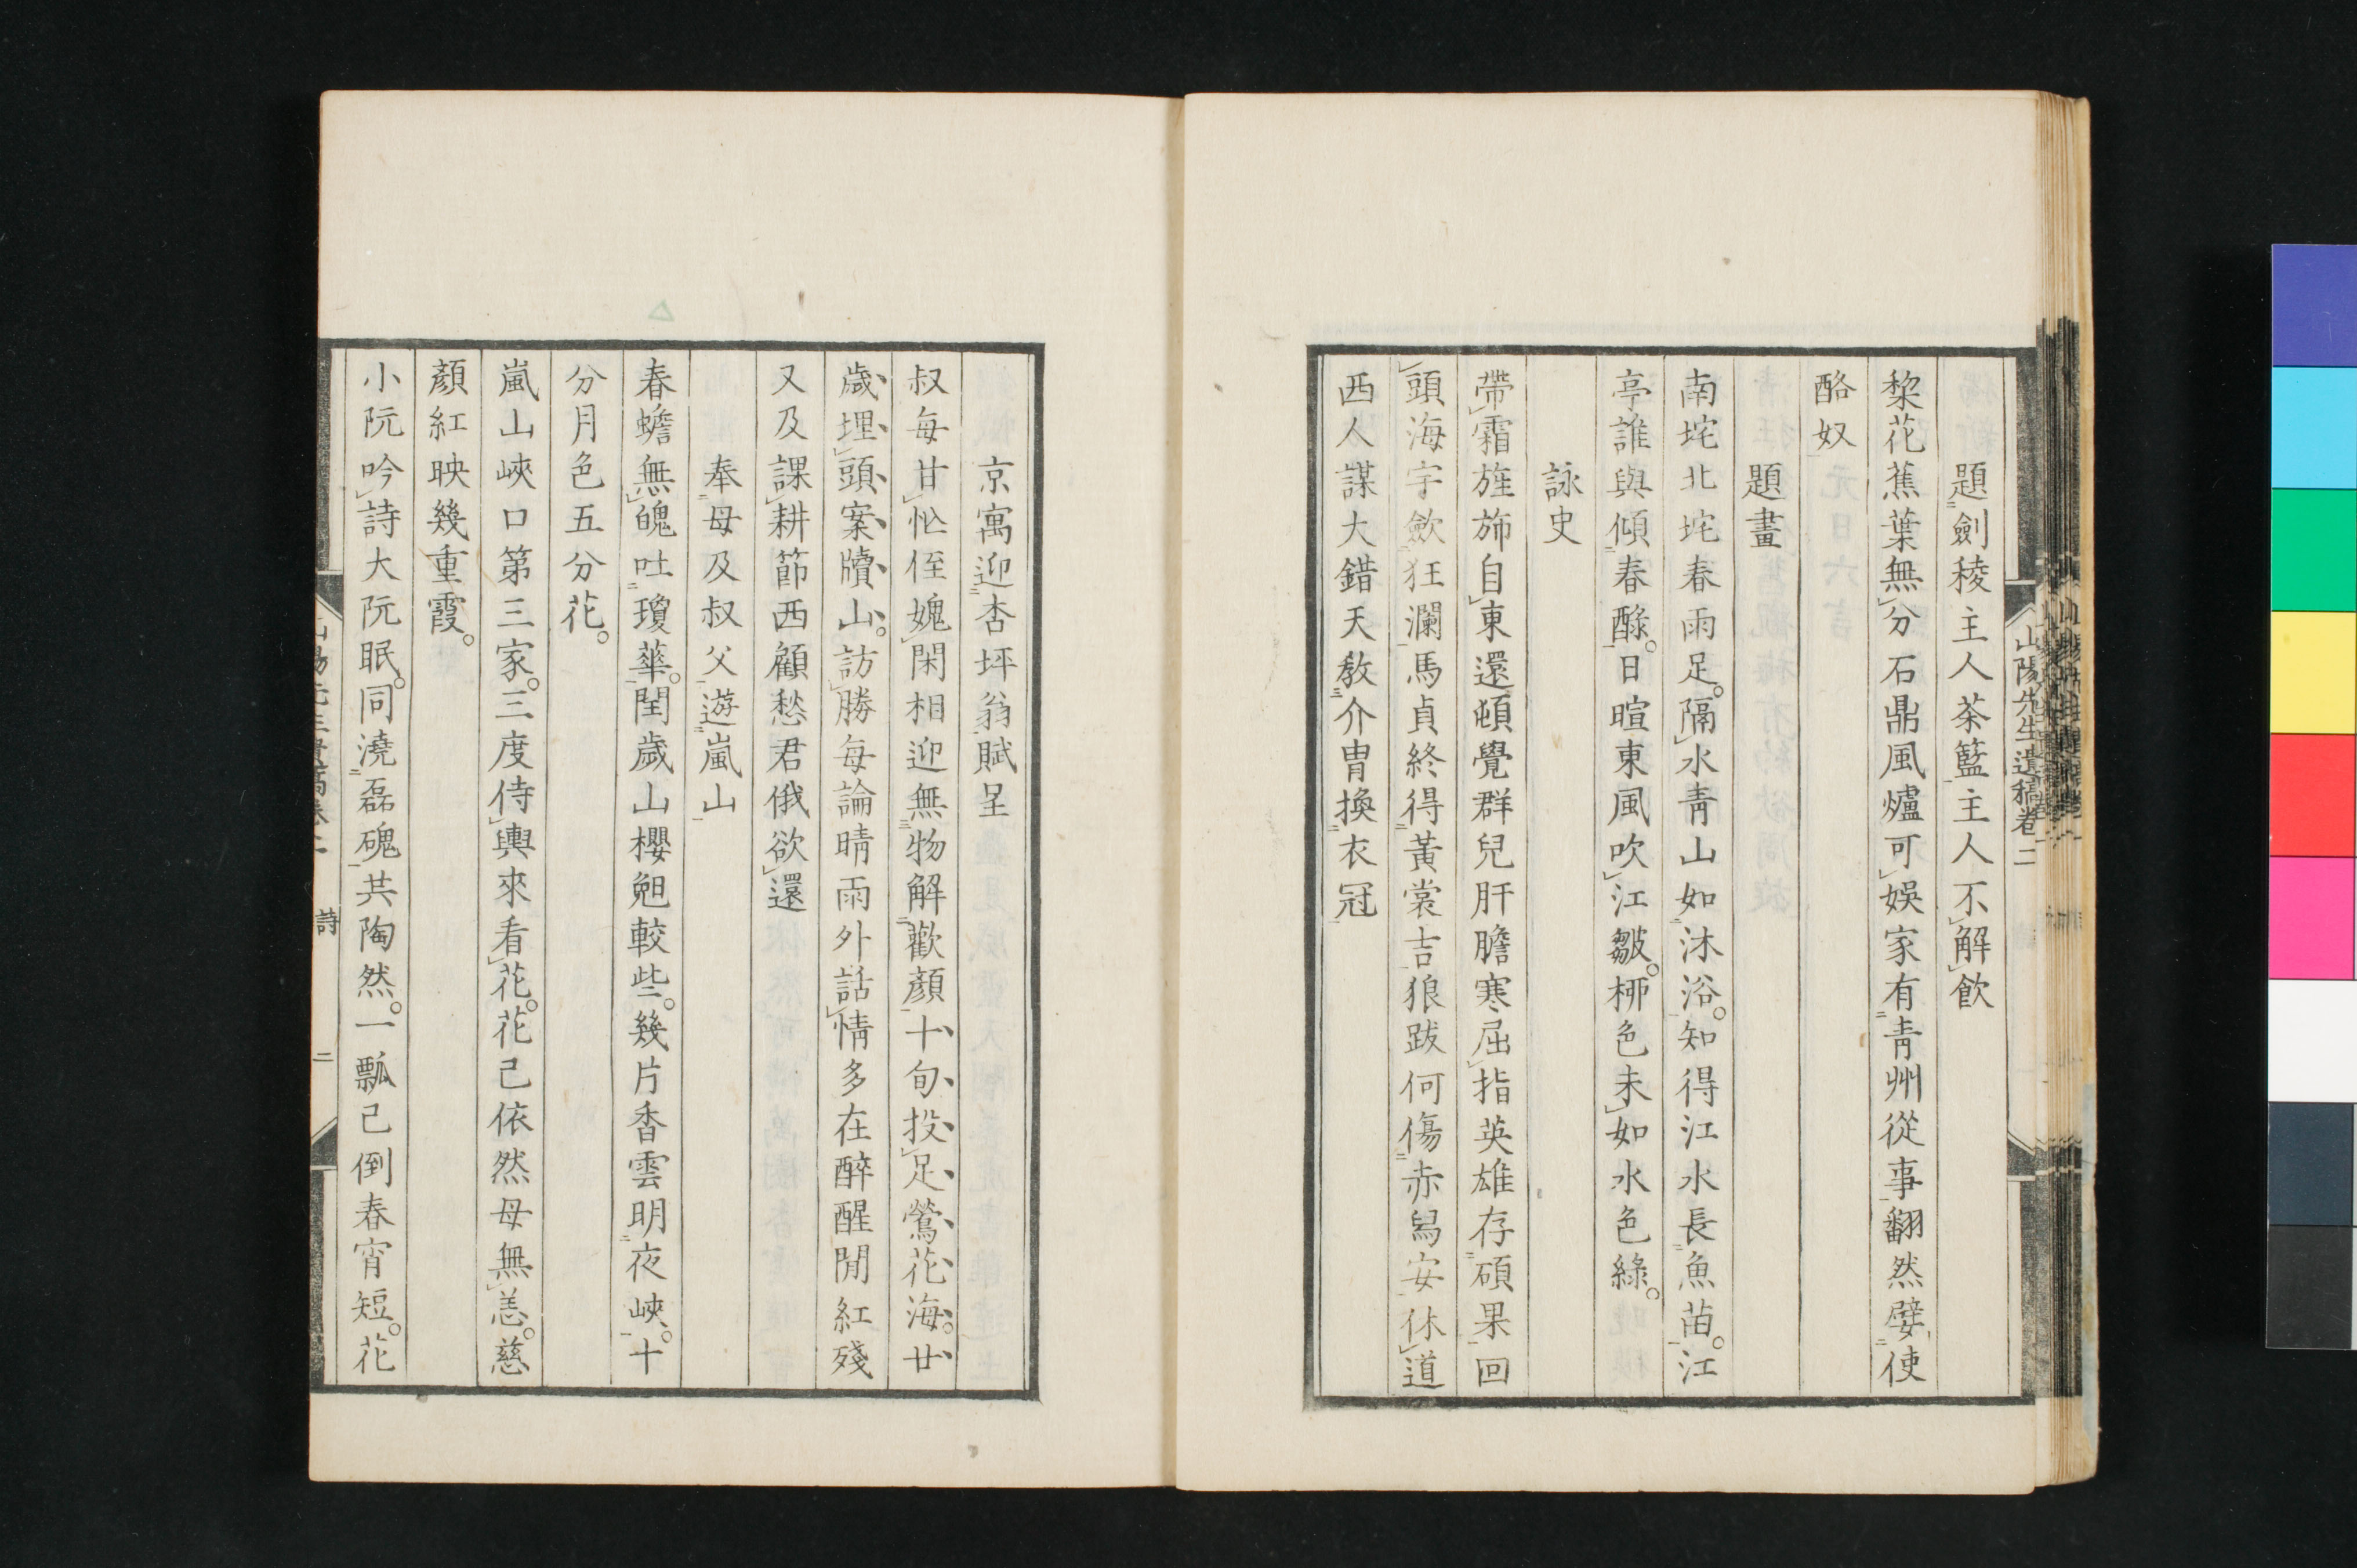 山陽先生遺稿卷二
題劍稜主人茶籃主人不解飲
棃花蕉葉無分石鼎風爐可娛家有靑州從事翻然嬖使
酪奴
題畫
南垞北垞春雨足隔水靑山如沐浴知得江水長魚苗江
亭誰與傾春醁日暄東風吹江皺桺色未如水色綠
詠史
帶霜旌斾自東還頓覺群兒肝膽寒屈指英雄存碩果回
頭海宇斂狂瀾馬貞終得黃裳吉狼跋何傷赤舄安休道
西人謀大錯天敎介冑換衣冠
京寓迎杏坪翁賦呈
叔每甘忙侄媿閑相迎無物解歡顏十旬投足鶯花海廿
歲埋頭案牘山訪勝每論晴雨外話情多在醉醒閒紅殘
又及課耕節西顧愁君俄欲還
奉母及叔父遊嵐山
春蟾無魄吐瓊華閏歲山櫻䞘較些幾片香雲明夜峽十
分月色五分花
嵐山峽口第三家三度侍輿來看花花己依然母無恙慈
顏紅映幾重霞
小阮吟詩大阮眠同澆磊磈共陶然一瓢己倒春宵短花
詩
二